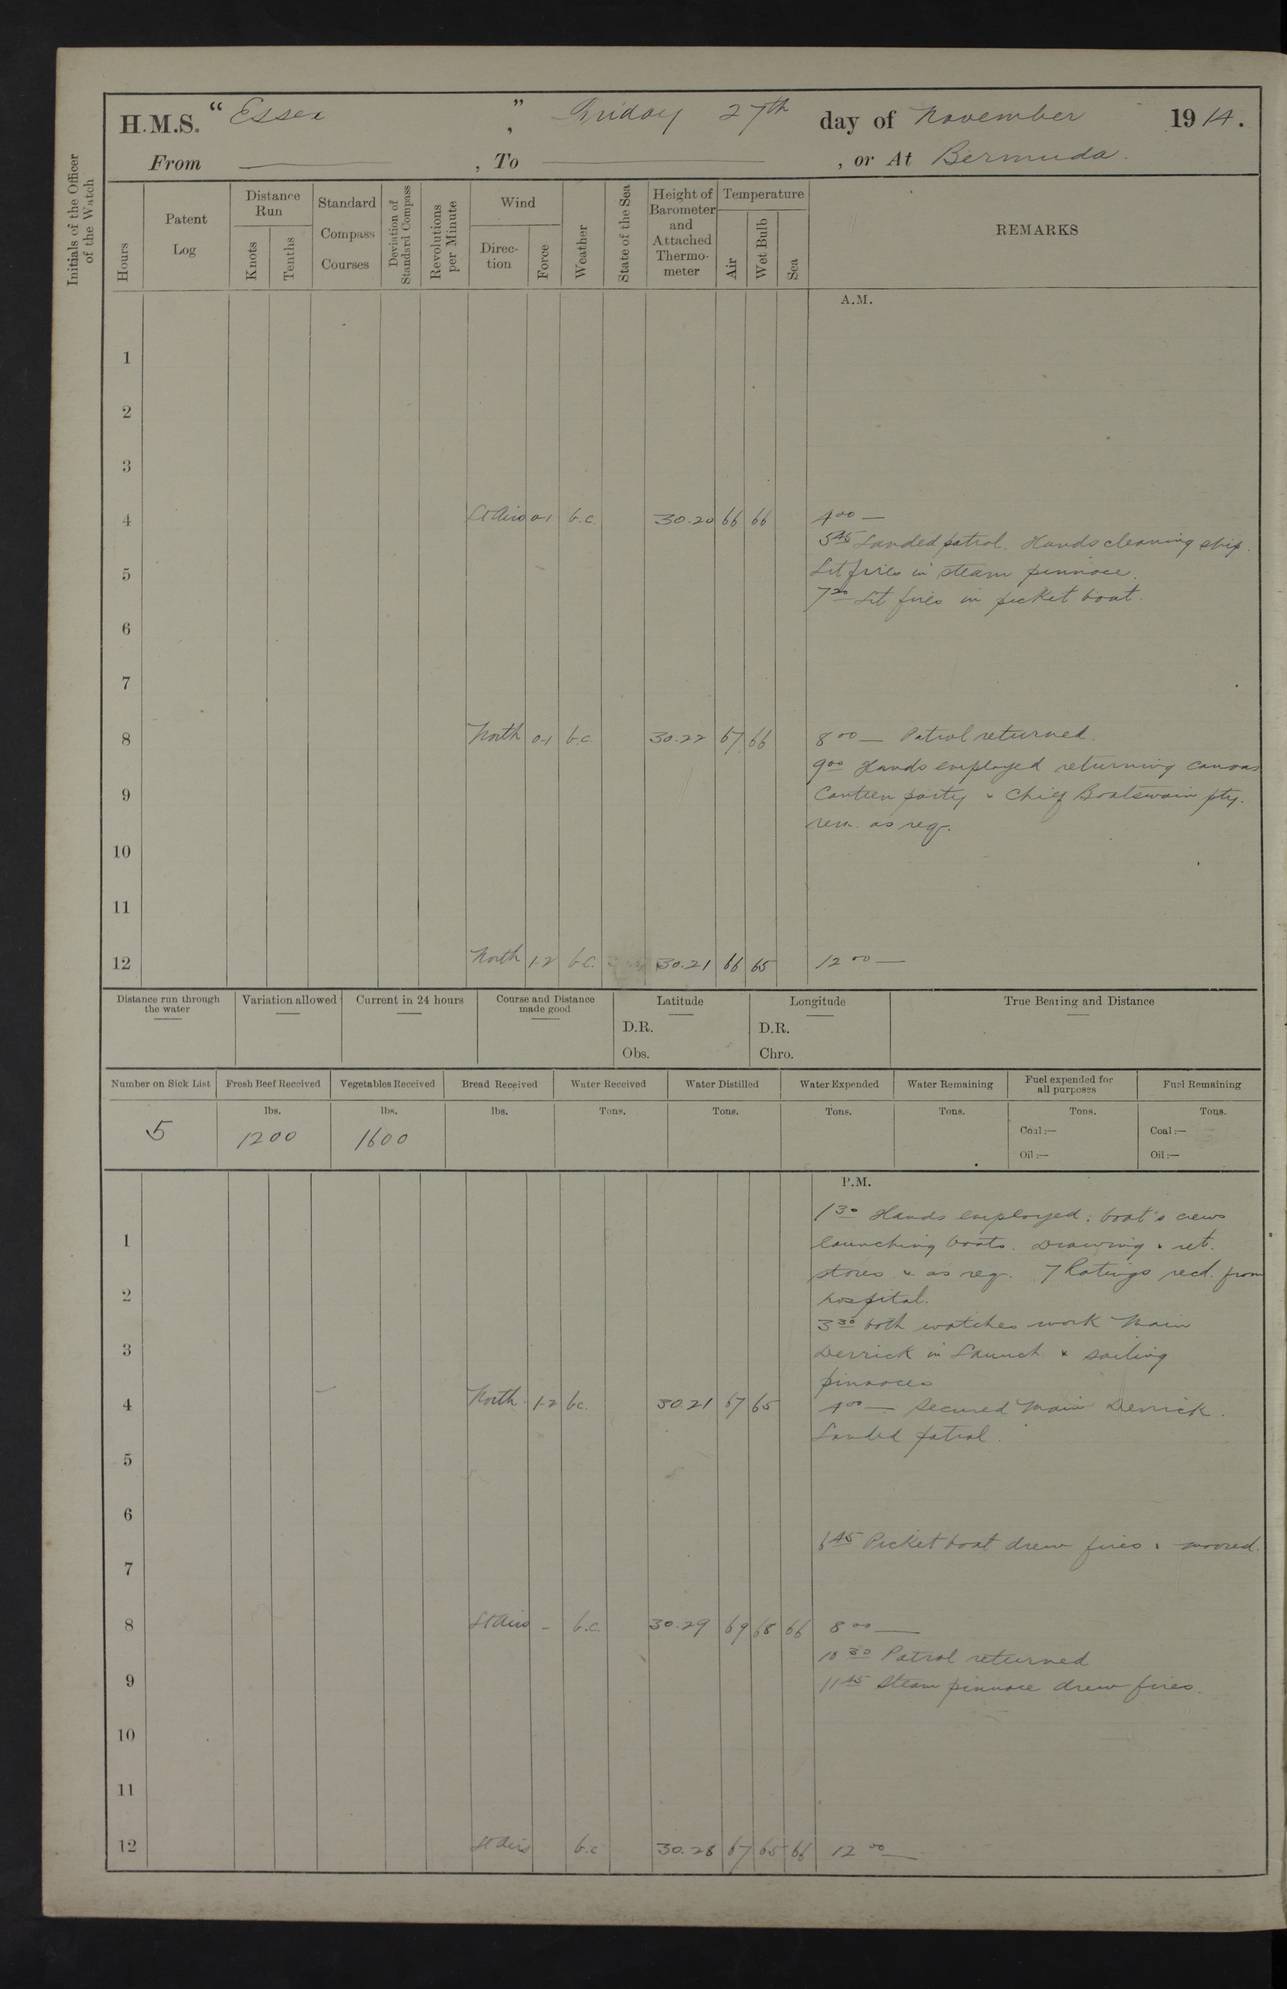 H.M.S. "Essex", Friday 27th day of November 1914.
From ———, To ———, or At Bermuda.
Initials of the Officer of the Watch
Hours
Patent Log
Distance Run
Knots
Tenths
Standard Compass Courses
Deviation of Standard Compass
Revolutions per Minute
Wind
Direction
Force
Weather
State of the Sea
Height of Barometer and Attached Thermometer
Temperature
Air
Wet Bulb
Sea
REMARKS
A.M.
1
2
3
4 Lt Airs 0-1 b.c. 30.20 66 66 4 00 —
5 45 Landed patrol. Hands cleaning ship.
5 Lit fires in steam pinnace.
7 20 Lit fires in picket boat.
6
7
8 North 0-1 b.c. 30.22 67 66 8 00 — Patrol returned.
9 00 Hands employed returning canvas
9 Canteen party & Chief Boatswain pty.
rem. as req.
10
11
12 North 1-2 b.c. 30.21 66 65 12 00 —
Distance run through the water
Variation allowed
Current in 24 hours
Course and Distance made good
Latitude
D.R.
Obs.
Longitude
D.R.
Chro.
True Bearing and Distance
Number on Sick List
Fresh Beef Received
Vegetables Received
Bread Received
Water Received
Water Distilled
Water Expended
Water Remaining
Fuel expended for all purposes
Fuel Remaining
lbs. lbs. lbs. Tons. Tons. Tons. Tons. Tons. Tons.
5 1200 1600
Coal:— Coal:—
Oil:— Oil:—
P.M.
1 30 Hands employed: boat's crews
1 launching boats. Drawing & ret.
stores & as req. 7 Ratings recd. from
2 hospital.
3 30 both watches work Main
3 Derrick in Launch & sailing
pinnaces
4 North 1-2 bc. 30.21 67 65 4 00 — Secured Main Derrick.
Landed patrol.
5
6
6 45 Picket boat drew fires & moored.
7
8 Lt Airs - b.c. 30.29 69 68 66 8 00 —
10 30 Patrol returned
9 11 45 Steam pinnace drew fires.
10
11
12 Lt Airs b.c 30.28 67 65 66 12 00 —